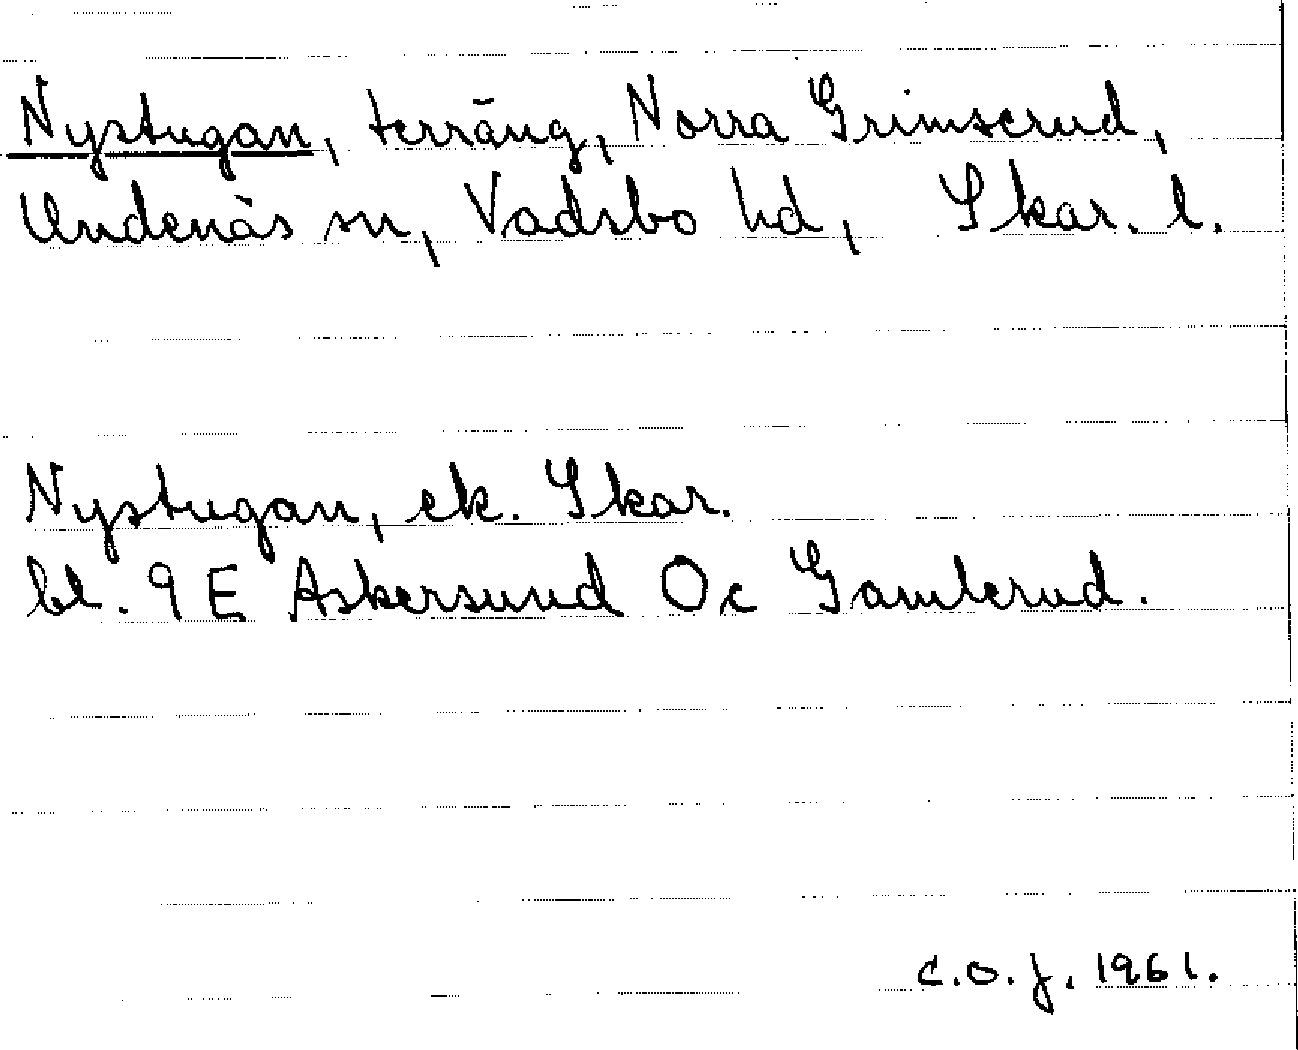 Nystugan, terräng, Norra Grimserud,
Undenäs sn, Vadsbo hd, Skar. l.
Nystugan, ek. Skar.
bl. 9 E Askersund Oc Gamlerud.
C.O.J. 1961.